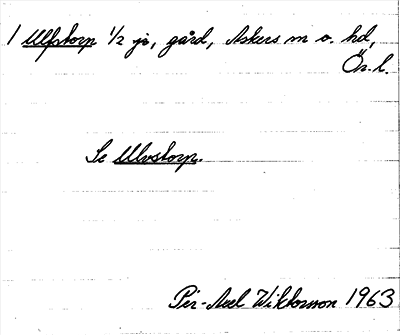 1 Ulfstorp 1/2 jo, gård, Askers sn o. hd,
Ör. l.
Se Ulvstorp.
Per-Axel Wiktorsson 1963